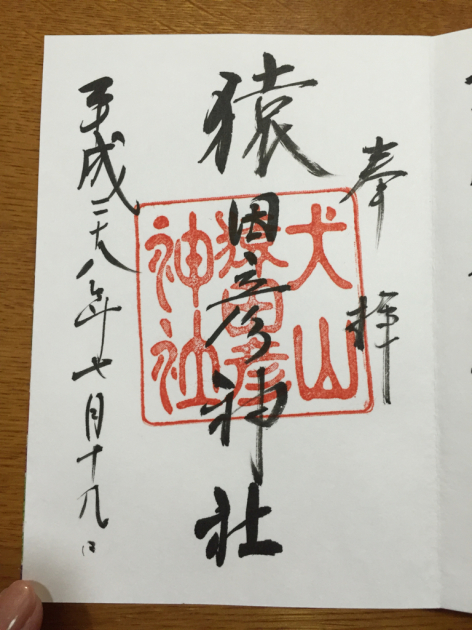 奉拝
猿田彦神社
平成二十八年七月十九日
犬山
猿田彦
神社